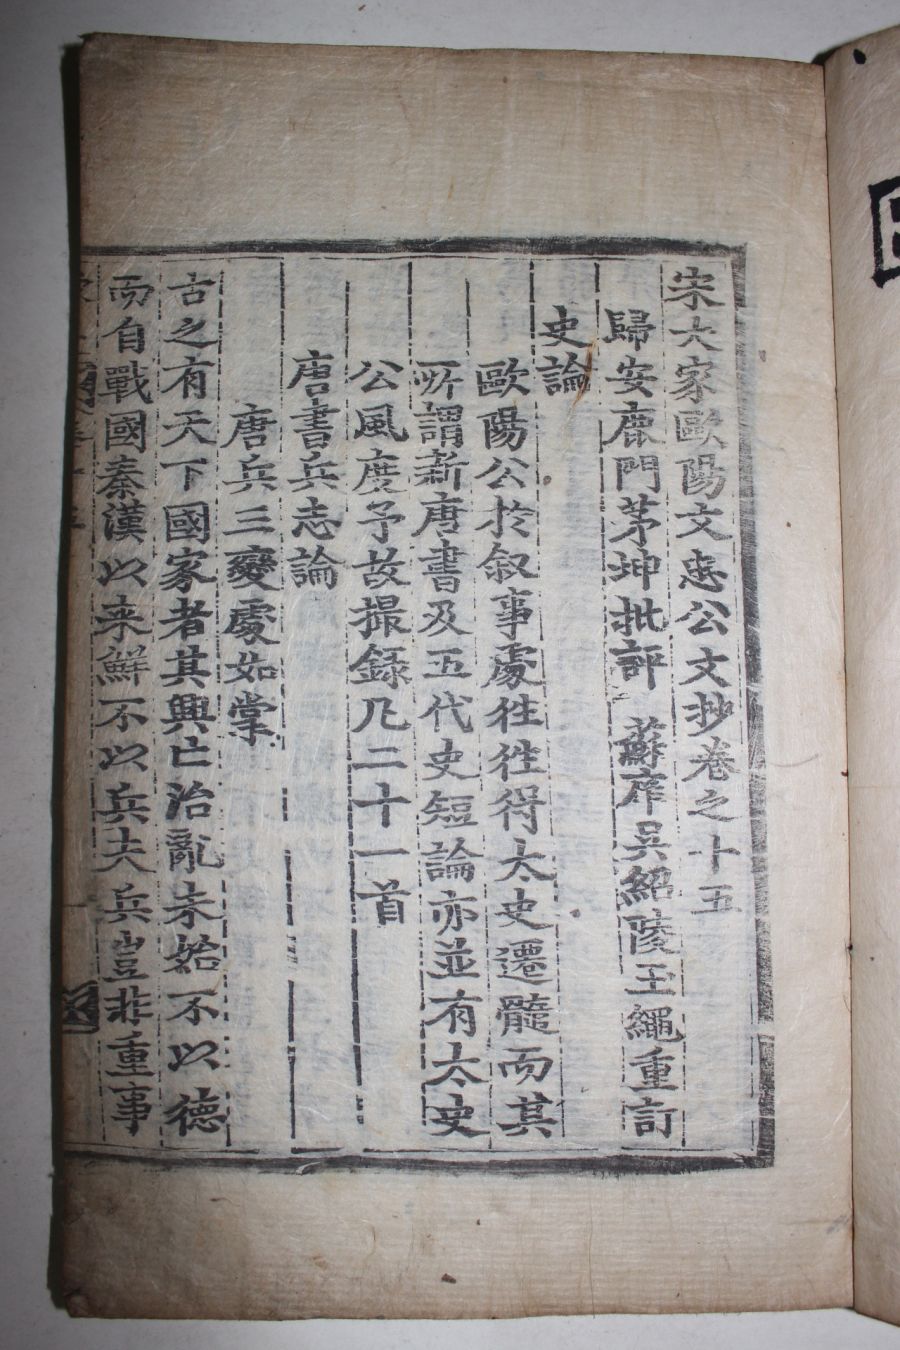 宋大家歐陽文忠公文抄卷之十五
歸安鹿門茅坤批評 蘇庠吳紹陵王繩重訂
史論
歐陽公於叙事處徃徃得太史遷髓而其
所謂新唐書及五代史短論亦並有太史
公風度予故撮録凡二十一首
唐書兵志論
唐兵三變處如掌
古之有天下國家者其興亡治亂未始不以德
而自戰國秦漢以来鮮不以兵夫兵豈非重事